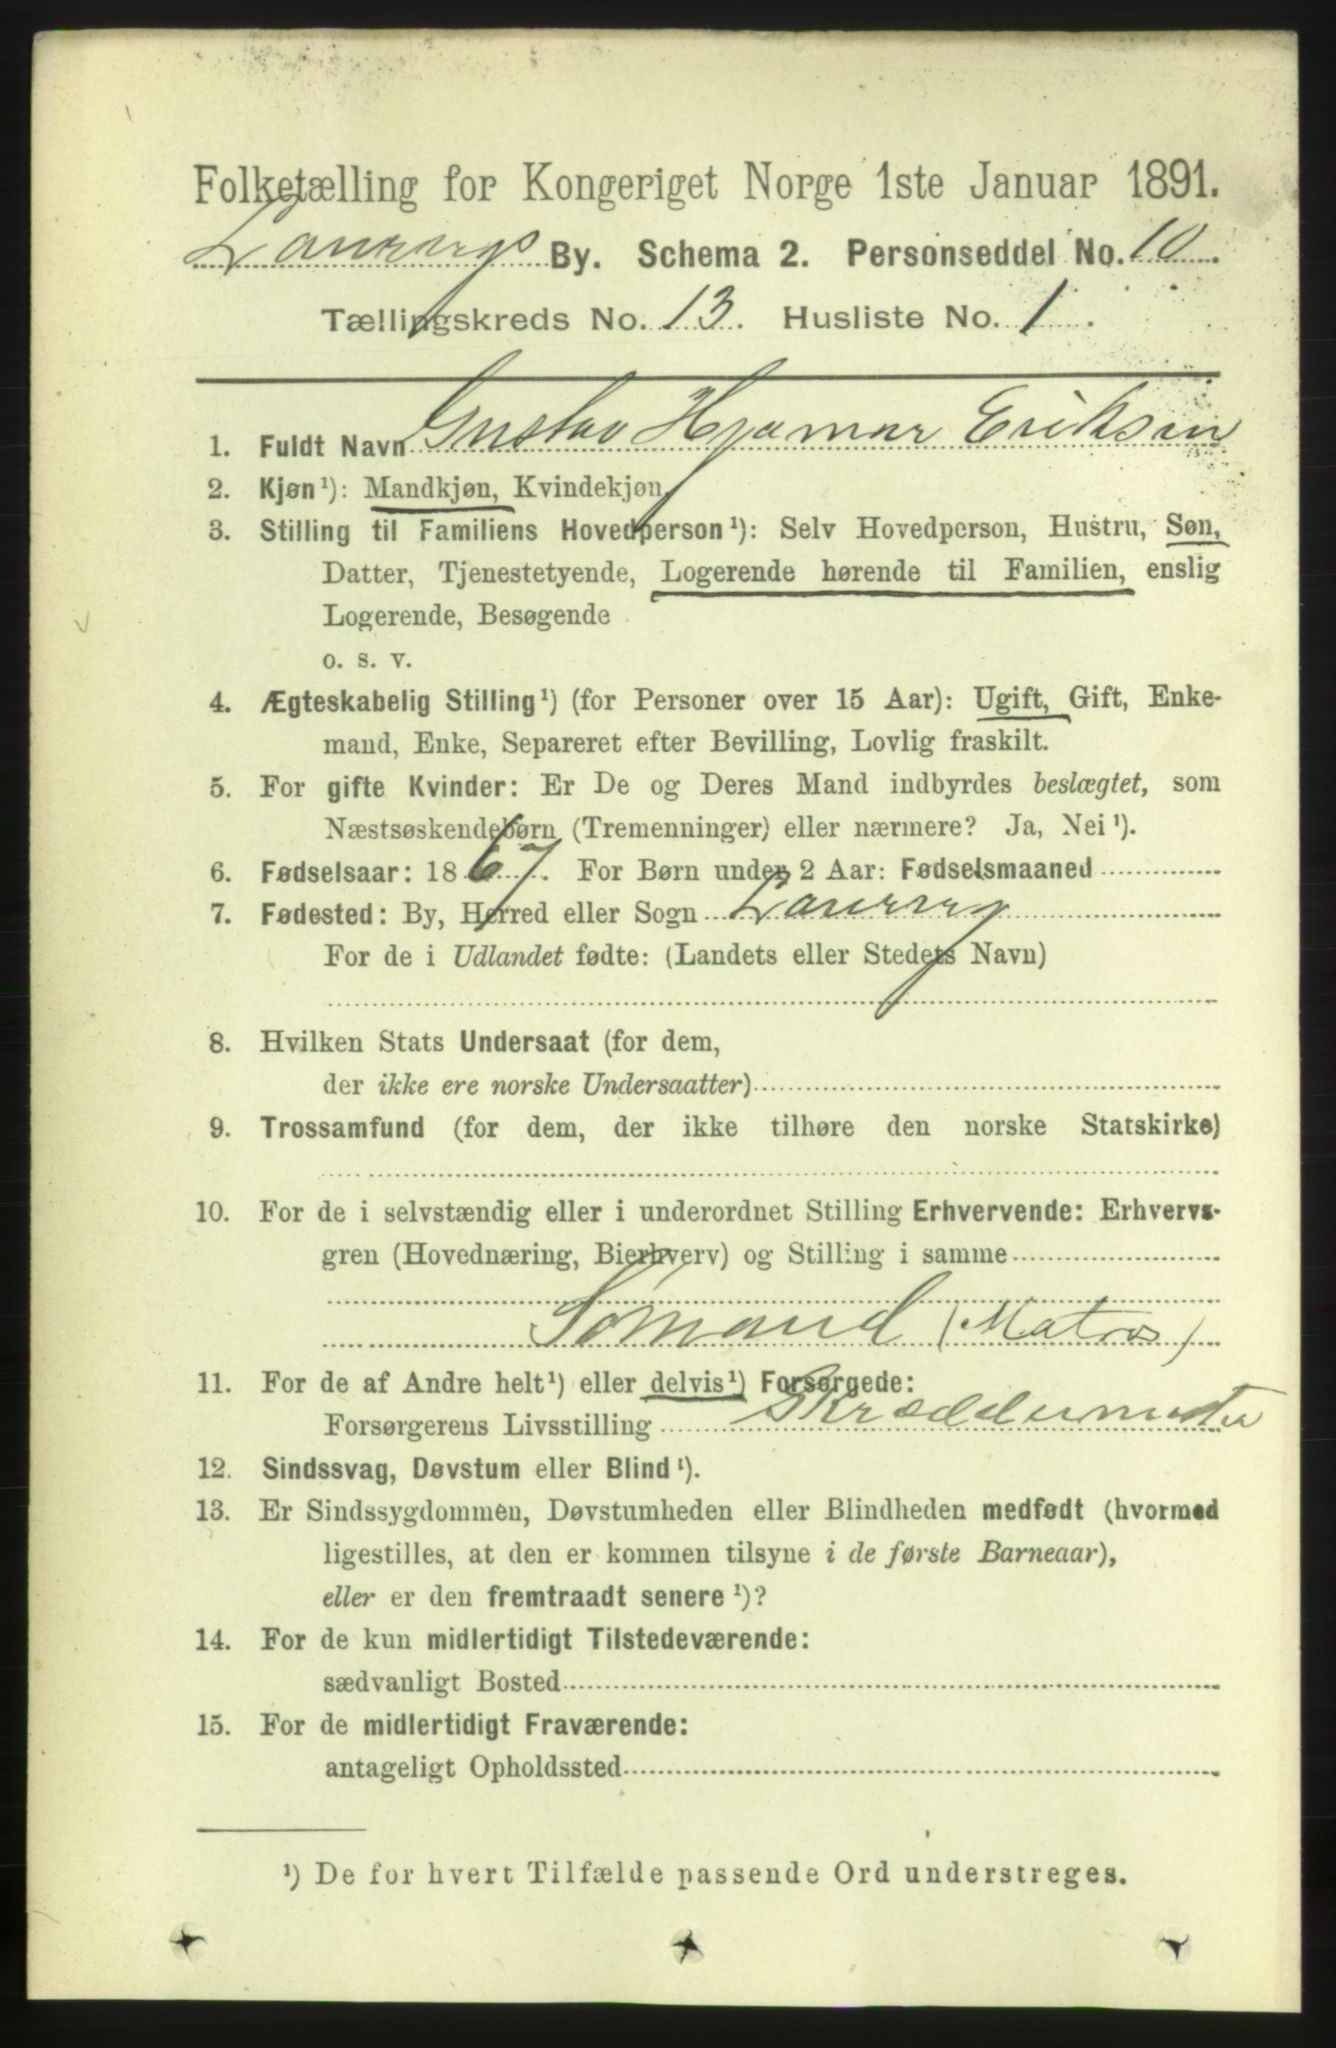 Folketælling for Kongeriget Norge 1ste Januar 1891.
Laurvigs By. Schema 2. Personseddel No. 10.
Tællingskreds No. 13. Husliste No. 1.
1. Fuldt Navn Gustav Hjamar Eriksen
2. Kjøn¹): Mandkjøn, Kvindekjøn.
3. Stilling til Familiens Hovedperson¹): Selv Hovedperson, Hustru, Søn,
Datter, Tjenestetyende, Logerende hørende til Familien, enslig
Logerende, Besøgende
o. s. v.
4. Ægteskabelig Stilling¹) (for Personer over 15 Aar): Ugift, Gift, Enke-
mand, Enke, Separeret efter Bevilling, Lovlig fraskilt.
5. For gifte Kvinder: Er De og Deres Mand indbyrdes beslægtet, som
Næstsøskendebørn (Tremenninger) eller nærmere? Ja, Nei¹).
6. Fødselsaar: 1867. For Børn under 2 Aar: Fødselsmaaned
7. Fødested: By, Herred eller Sogn Laurvig
For de i Udlandet fødte: (Landets eller Stedets Navn)
8. Hvilken Stats Undersaat (for dem,
der ikke ere norske Undersaatter)
9. Trossamfund (for dem, der ikke tilhøre den norske Statskirke)
10. For de i selvstændig eller i underordnet Stilling Erhvervende: Erhvervs-
gren (Hovednæring, Bierhverv) og Stilling i samme
Sømand (Matros)
11. For de af Andre helt¹) eller delvis¹) Forsørgede:
Forsørgerens Livsstilling Skræddermester
12. Sindssvag, Døvstum eller Blind¹).
13. Er Sindssygdommen, Døvstumheden eller Blindheden medfødt (hvormed
ligestilles, at den er kommen tilsyne i de første Barneaar),
eller er den fremtraadt senere¹)?
14. For de kun midlertidigt Tilstedeværende:
sædvanligt Bosted
15. For de midlertidigt Fraværende:
antageligt Opholdssted
¹) De for hvert Tilfælde passende Ord understreges.